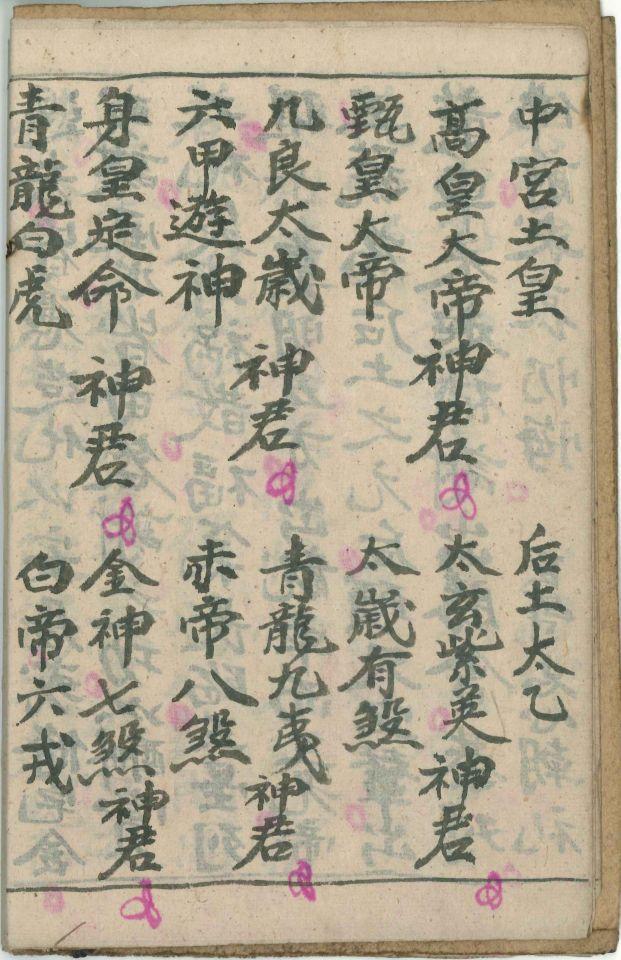 中宮土皇
后土太乙
高皇大帝神君
太玄紫英神君
甄皇大帝
太歲有煞
九良太歲神君
青龍九夷神君
六甲遊神
赤帝八煞
身皇定命神君
金神七煞神君
青龍白虎
白帝六戎